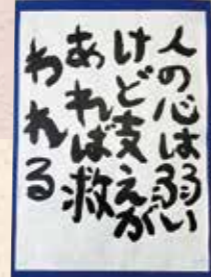 人の心は弱い
けど支えが
あれば救
われる